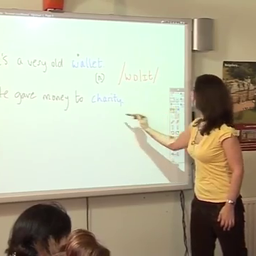 's a very old wallet
(n) /wɒlɪt/
e gave money to charity.